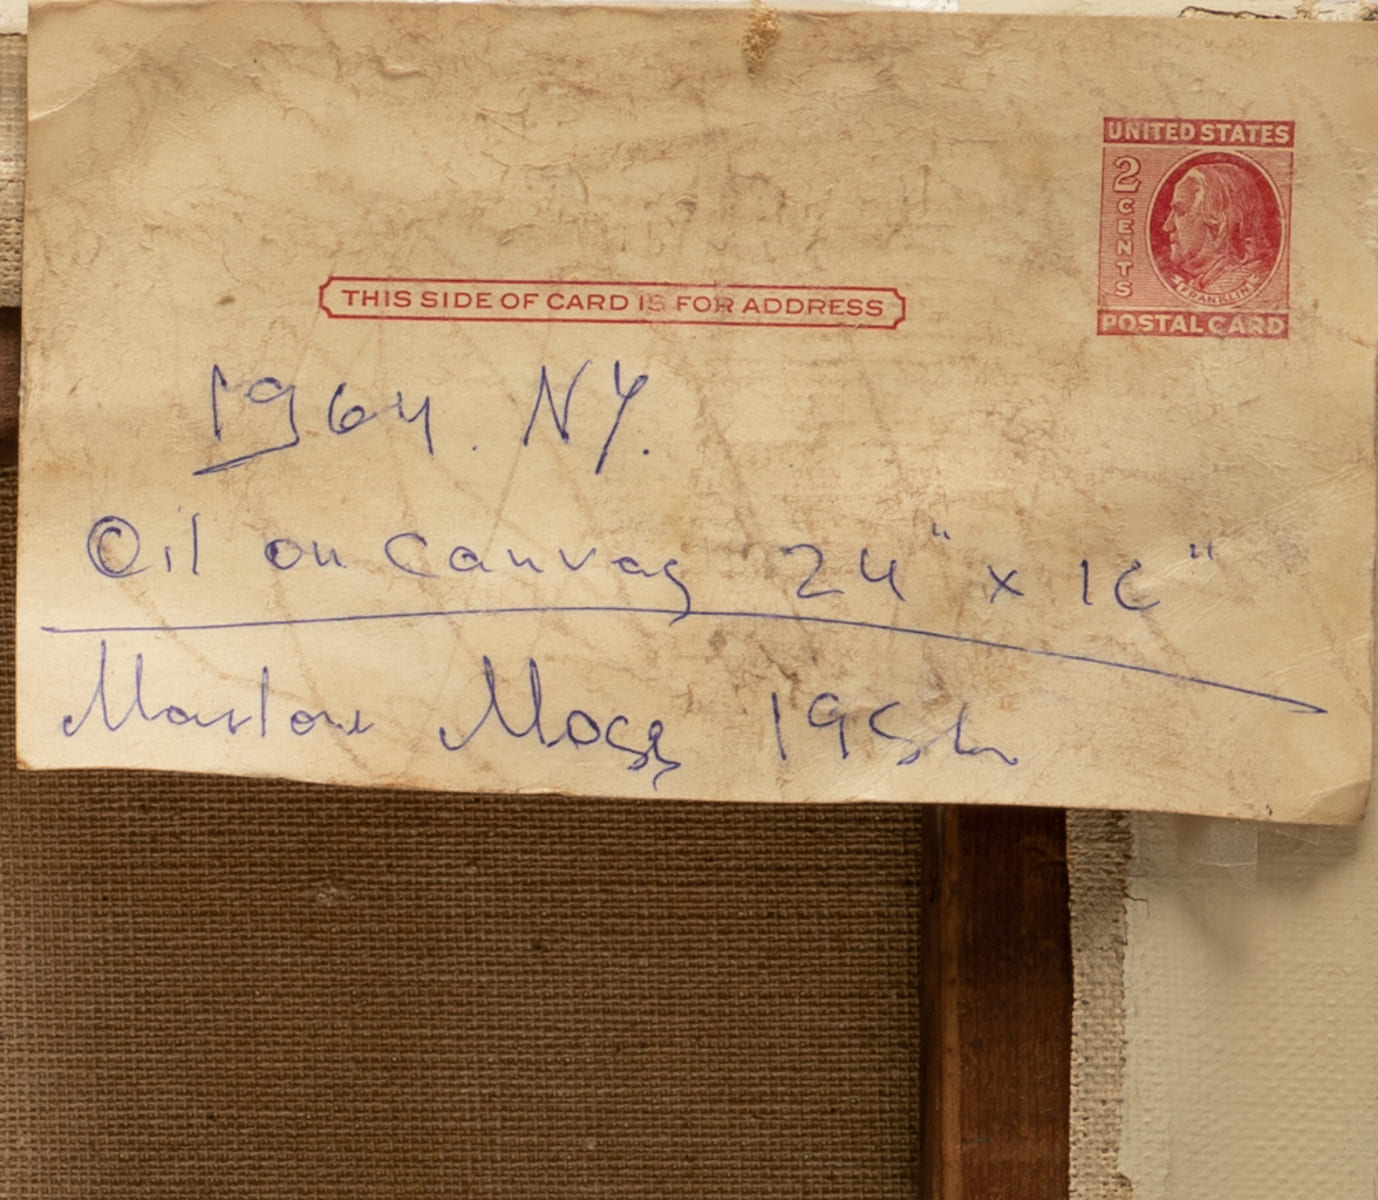 UNITED STATES
2 CENTS
FRANKLIN
POSTAL CARD
THIS SIDE OF CARD IS FOR ADDRESS
1964. NY.
Oil on Canvas 24" x 16"
Marlow Moss